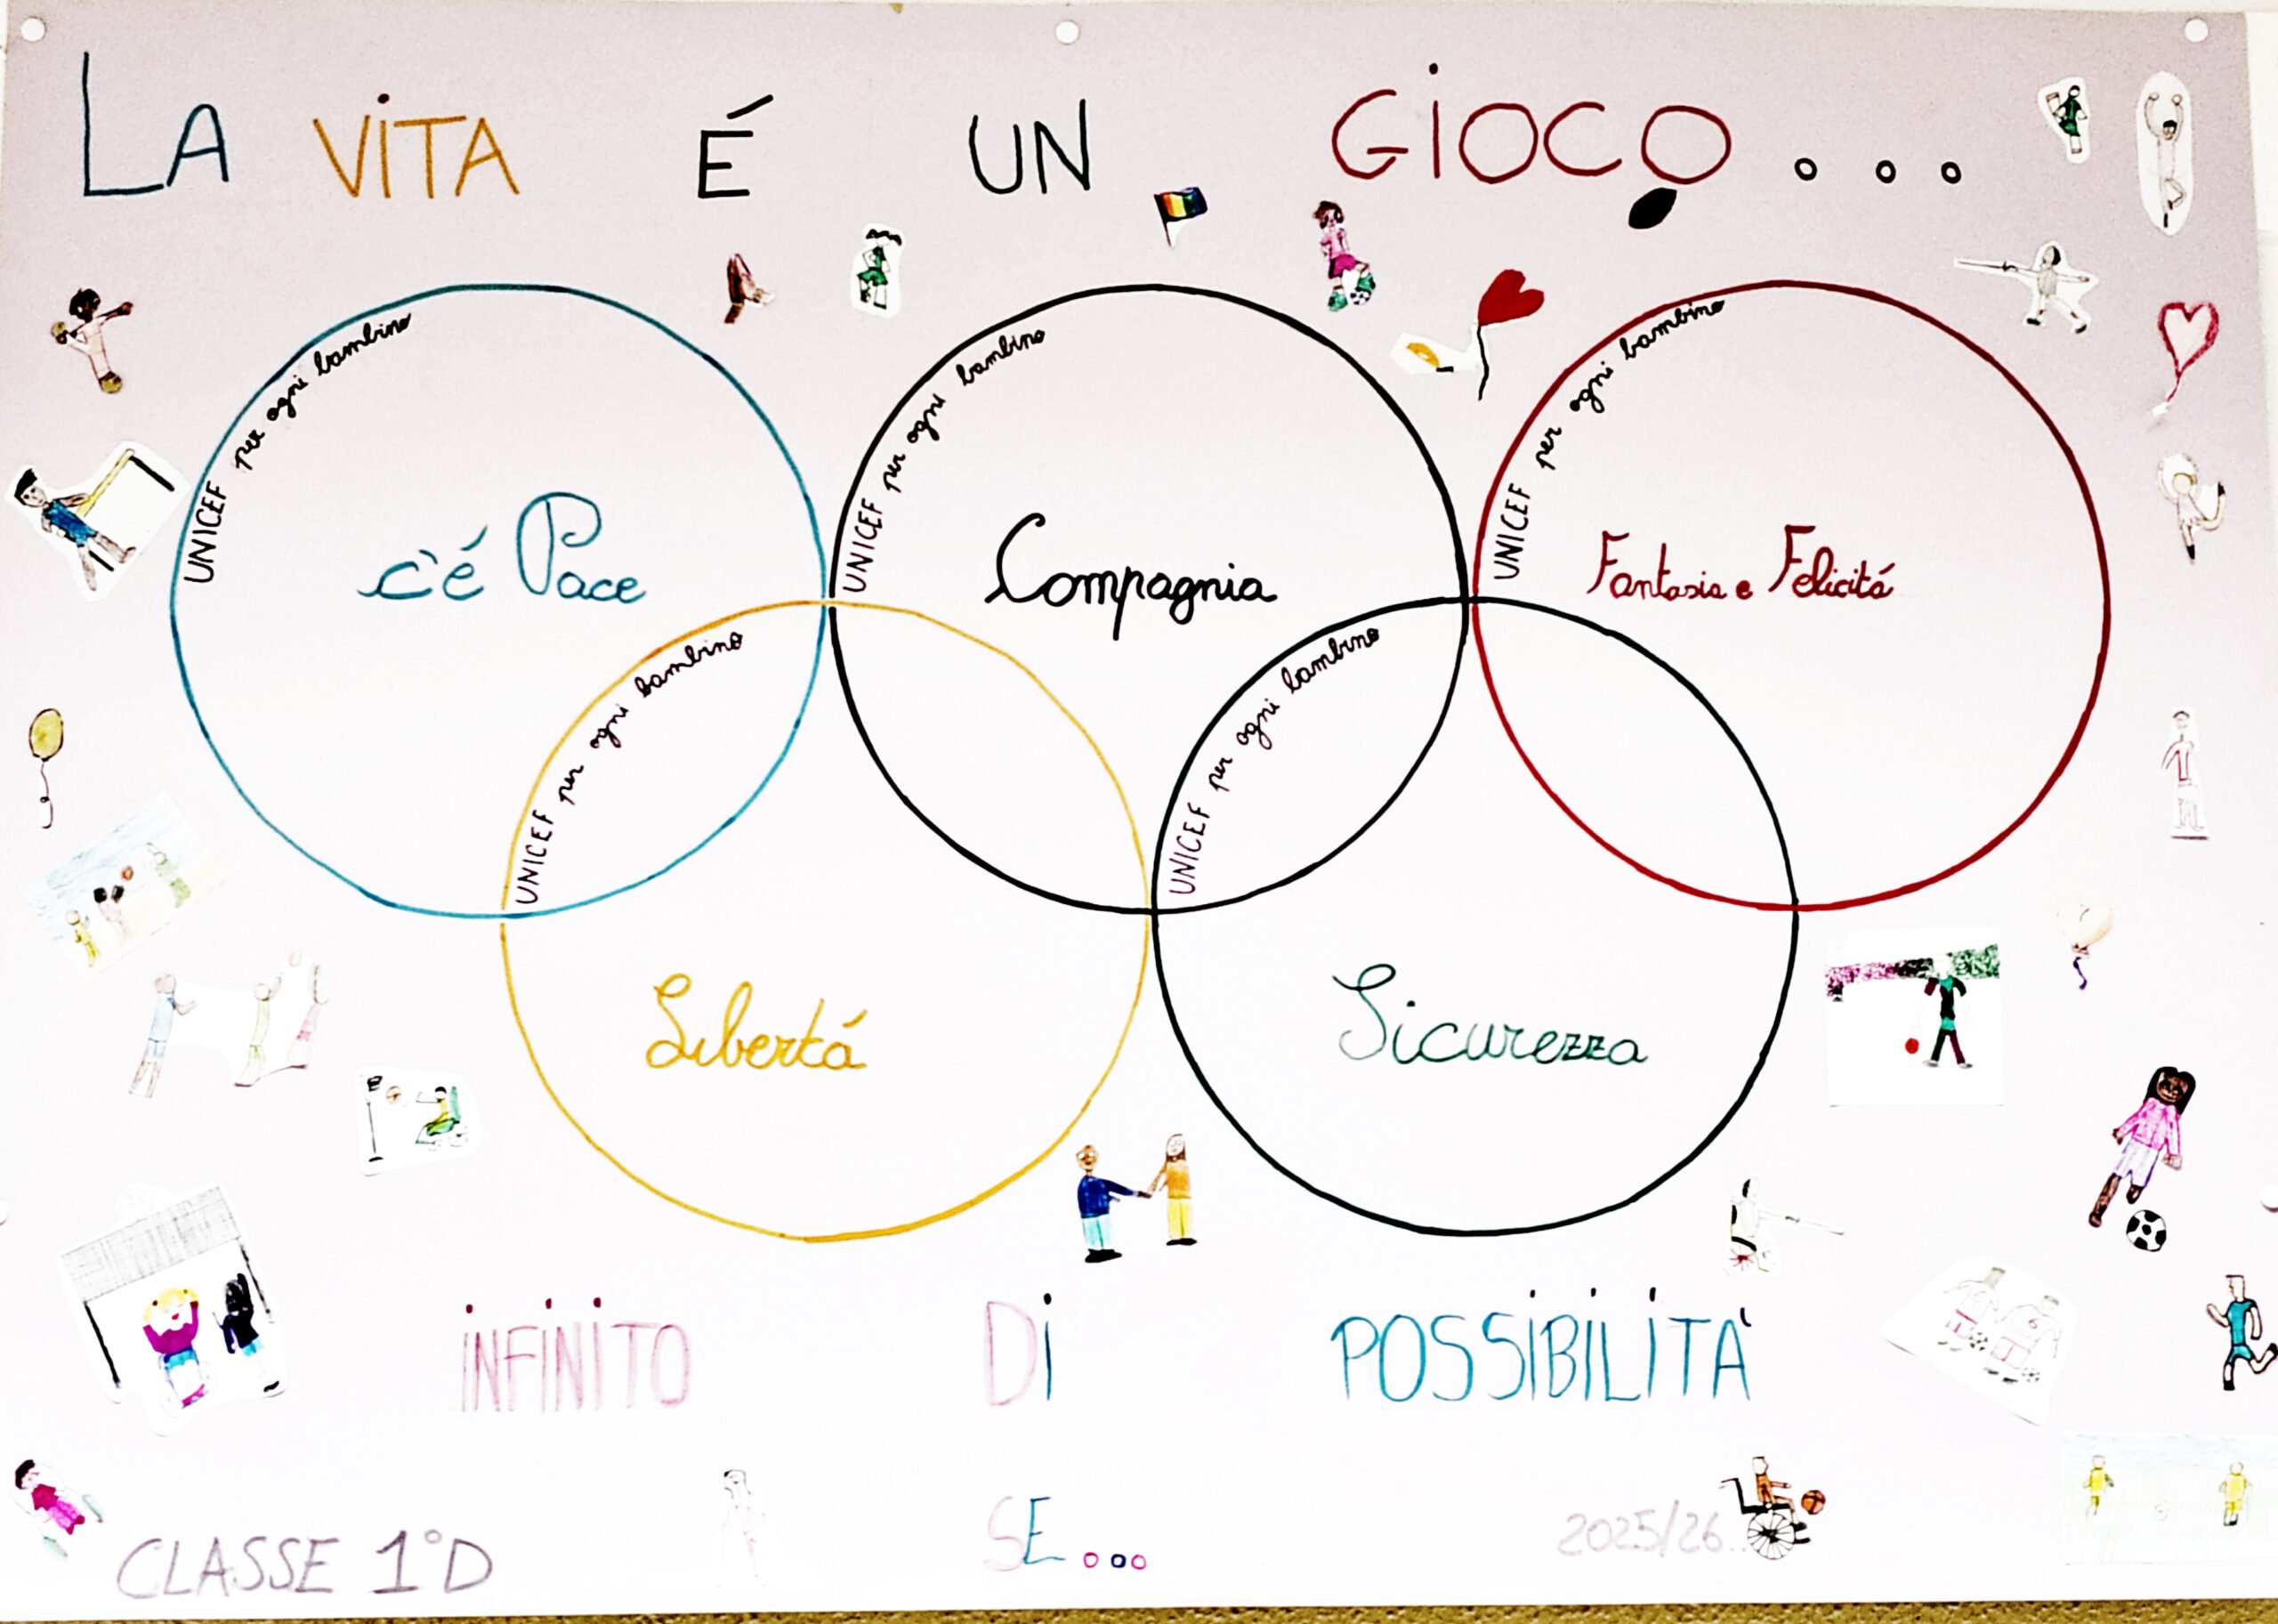 LA VITA É UN GIOCO...
UNICEF per ogni bambino
c'é Pace
UNICEF per ogni bambino
Compagnia
UNICEF per ogni bambino
Fantasia e Felicitá
UNICEF per ogni bambino
Libertá
UNICEF per ogni bambino
Sicurezza
INFINITO DI POSSIBILITÀ
SE...
CLASSE 1°D
2025/26